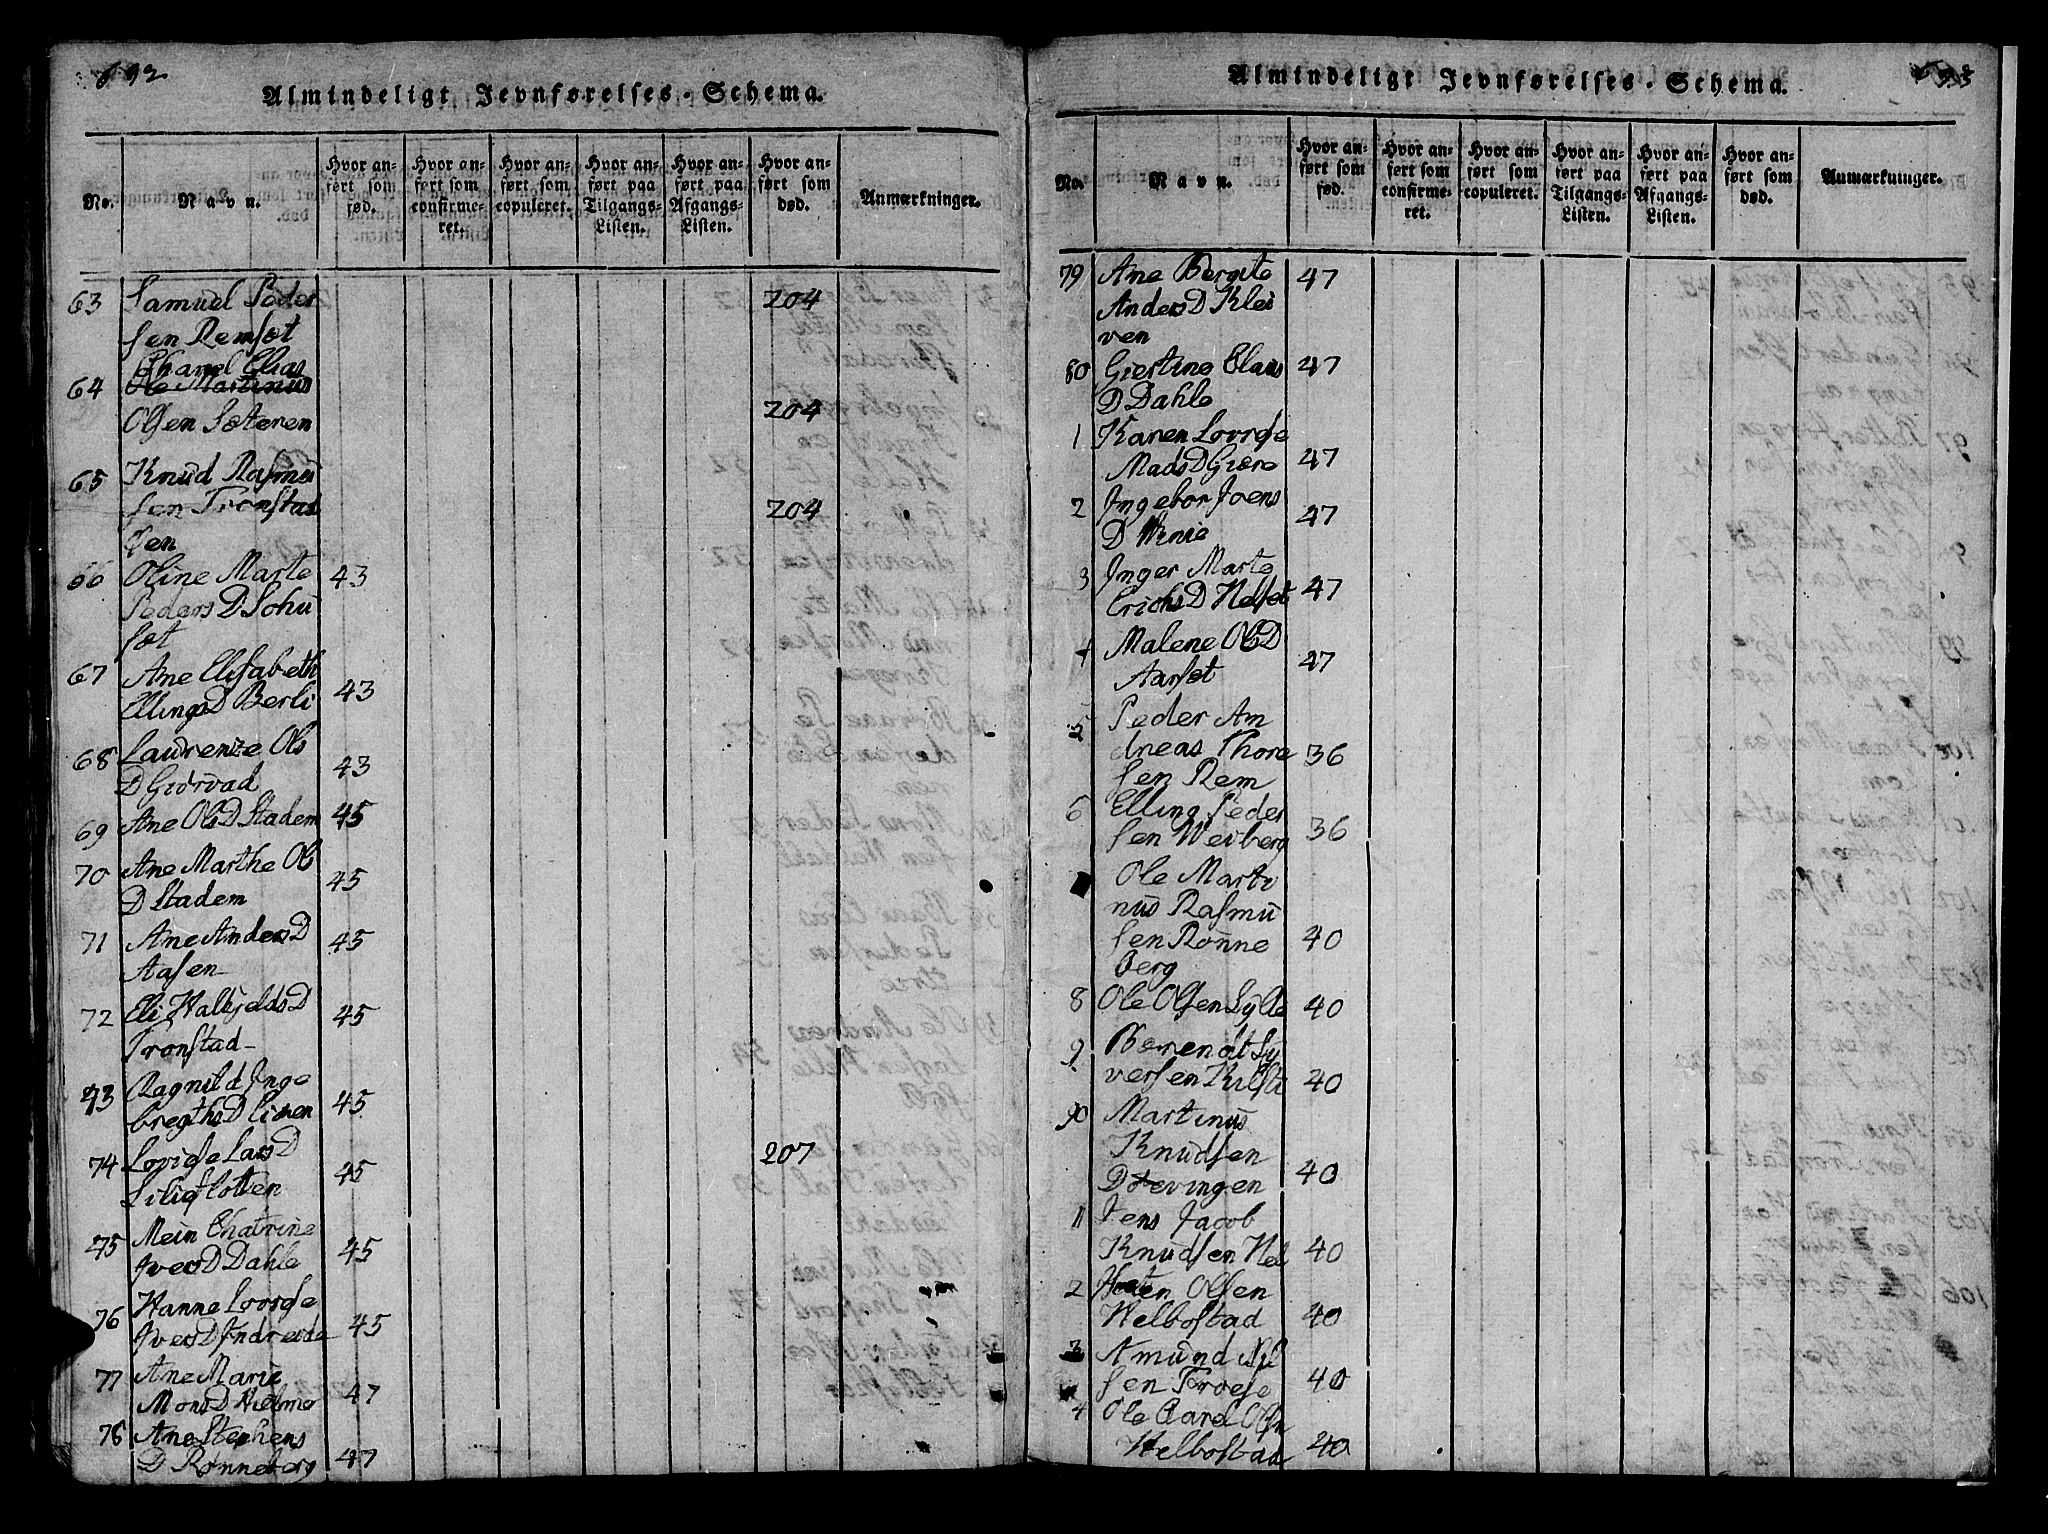 692
Almindeligt Jevnførelses-Schema.
No.
Navn.
Hvor an-
ført som
fød.
Hvor an-
ført som
confirme-
ret.
Hvor an-
ført som
copuleret.
Hvor an-
ført paa
Tilgangs-
Listen.
Hvor an-
ført paa
Afgangs-
Listen.
Hvor an-
ført som
død.
Anmærkninger.
63 Samuel Peder 204
sen Remsæt
Chanel Elias
64 Ole Martinus
Olsen Sæteren 204
65 Knud Rasmu
sen Tronstad 204
øen
66 Oline Marte 43
Peders D Sohu
sæt
67 Ane Elisabeth
Ellings D Berli 43
68 Laurenze Ols
D Giørvad 43
69 Ane Ols D Stadem 45
70 Ane Marthe Ols
D Stadem 45
71 Ane Anders D 45
Aasen
72 Eli Halkjelds D 45
Tronstad
73 Ragnild Inge
bregths D Limen 45
74 Lovise Lars D 207
Lilieslotten 45
75 Mein Chatrine
Ivers D Dahle 45
76 Hanne Lovise
Ivers D Indreide 45
77 Ane Marie
Mons D Hielme 47
78 Ane Stephens
D Rønneberg 47
Almindeligt Jevnførelses-Schema.
No.
Navn.
Hvor an-
ført som
fød.
Hvor an-
ført som
confirme-
ret.
Hvor an-
ført som
copuleret.
Hvor an-
ført paa
Tilgangs-
Listen.
Hvor an-
ført paa
Afgangs-
Listen.
Hvor an-
ført som
død.
Anmærkninger.
79 Ane Bergite 47
Anders D Klei
ven
80 Giertine Claus 47
D Dahle
1 Karen Lovise
Mads D Giære 47
2 Ingebor Joens
D Winie 47
3 Inger Marte
Erichs D Helset 47
4 Malene Ols D
Aarsæt 47
5 Peder An
dreas Thore 36
sen Rem
6 Elling Peder
sen Weiberg 36
Ole Marti
nus Rasmu
sen Rønne 40
berg
8 Ole Olsen Sylte 40
9 Berendt Sy
versen Kilsti 40
90 Martinus
Knudsen
Døevingen 40
11 Jens Jacob
Knudsen Hel 40
2 Olsen
Welbostad 40
3 Amund Nil
sen Froese 40
4 Ole Carel Olsn
Welbostad 40